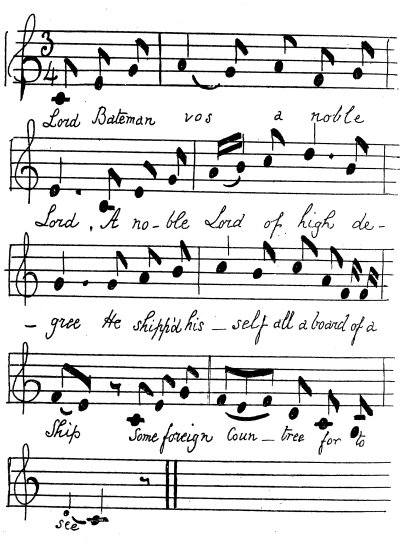 3
4
Lord Bateman vos a noble
Lord, A no-ble Lord of high de-
- gree He shipp'd his - self all a board of a
Ship Some foreign Coun - tree for to
see